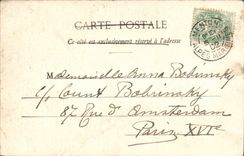 CARTE POSTALE
Ce côté est exclusivement réservé à l'adresse
MENTON
02
ALPES MARIT
Mademoiselle Anna Bobrinsky
c/o Count Bobrinsky
87 Rue d'Amsterdam
Paris XVIe